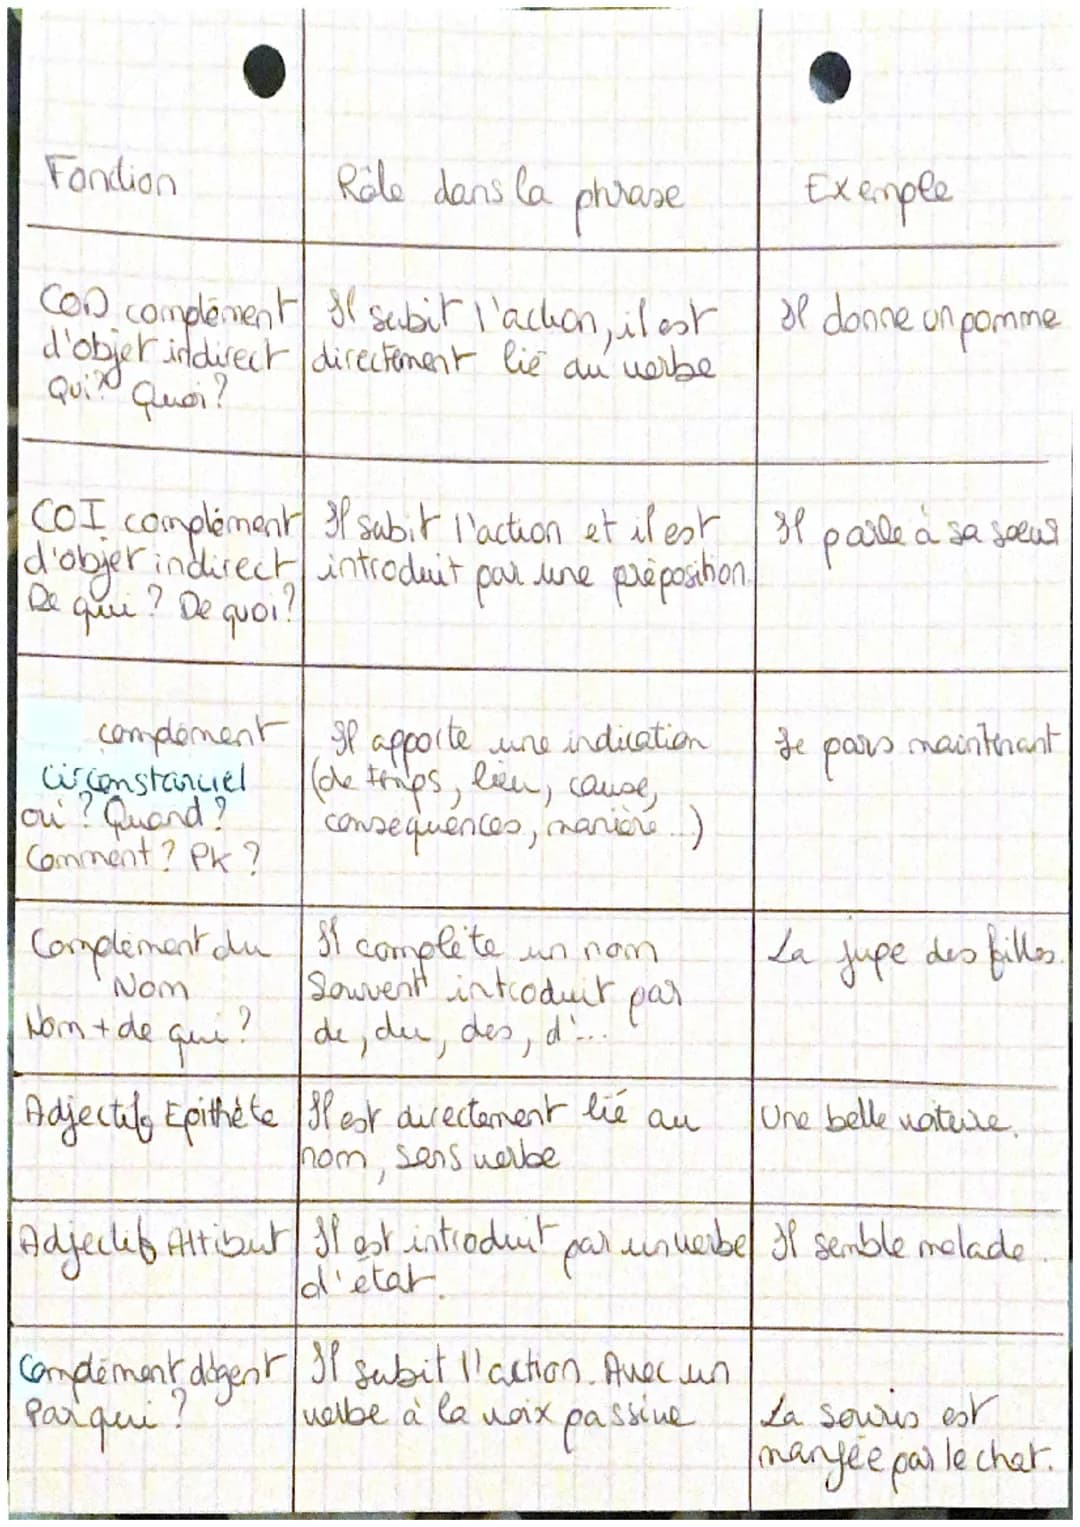 Fonction
Rôle dans la phrase
Exemple
COD complément
d'objet indirect
Qui? Quoi?
Il subit l'action, il est
directement lié au verbe
Il donne un pomme
COI complément
d'objet indirect
De qui ? De quoi?
Il subit l'action et il est
introduit par une préposition
Il parle à sa soeur
complément
circonstanciel
où ? Quand ?
Comment ? Pk ?
Il apporte une indication
(de temps, lieu, cause,
conséquences, manière...)
Je pars maintenant
Complément du
Nom
Nom + de qui ?
Il complète un nom
Souvent introduit par
de, du, des, d'...
La jupe des filles.
Adjectif Epithète
Il est directement lié au
nom, sans verbe
Une belle voiture.
Adjectif Attibut
Il est introduit par un verbe
d'état.
Il semble malade.
Complément d'agent
Par qui ?
Il subit l'action. Avec un
verbe à la voix passive
La souris est
mangée par le chat.